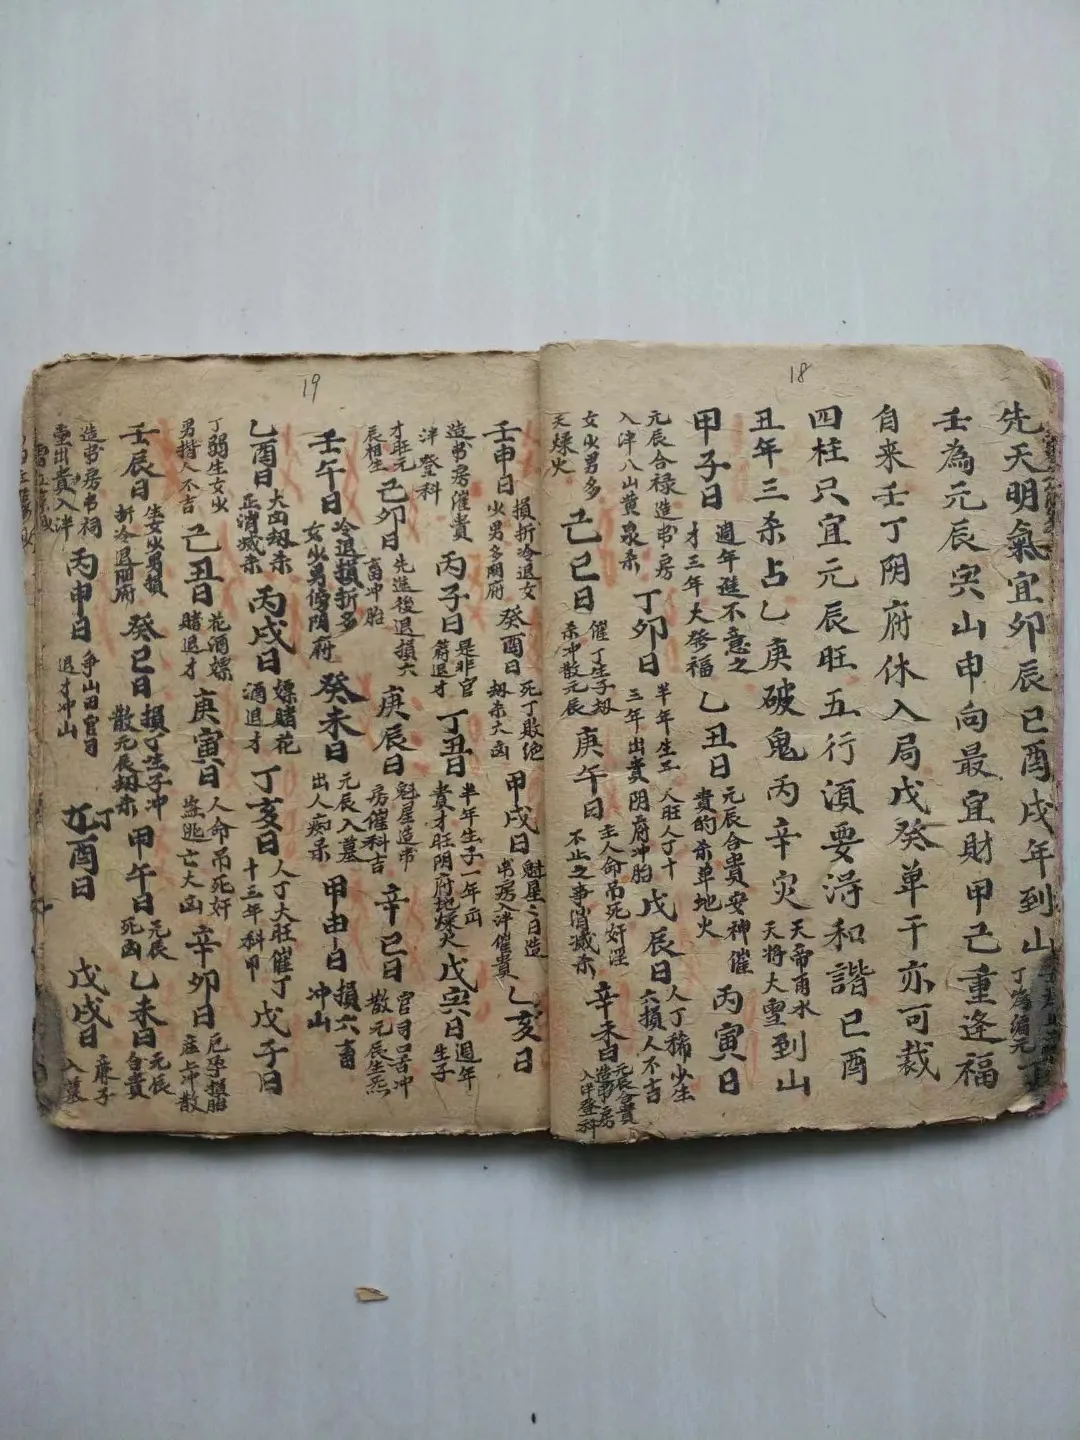 18
先天明氣宜卯辰巳酉戌年到山
壬為元辰寅山申向最宜財甲己重逢福
自来壬丁阴府休入局戊癸單干亦可裁
四柱只宜元辰旺五行須要淂和諧巳酉
丑年三杀占乙庚破鬼丙辛灾
天將大聖到山
甲子日
週年進不意之
才三年大發福
乙丑日
元辰合貴安神催
貴的杀单地火
丙寅日
元辰合祿造书房
入泮八山黄泉杀
丁卯日
半年生工人旺人丁十
三年出貴阴府冲胎
戊辰日
人丁稀少生
六損人不吉
女火男多
天燥火
己巳日
催丁生子刼
杀冲散元辰
庚午日
主人命吊死奸淫
不止之事消滅杀
辛未日
元辰合貴
造书房
入泮登科
19
壬申日
損折冷退女
火男多阴府
癸酉日
死丁敗绝
刼杀大凶
甲戌日
魁星之日造
书房入泮催貴
乙亥日
造书房催貴
泮登科
丙子日
是非官
箭退才
丁丑日
半年生子一年凶
貴才旺阴府地燥火
戊寅日
週年
生子
才旺元
辰相生
己卯日
先進後退損六
畜冲胎
庚辰日
魁星造书
房催科吉
辛巳日
官司口舌冲
散元辰生炁
壬午日
冷退損折多
女火男傷阴府
癸未日
元辰入墓
出人痴呆
甲申日
損六畜
冲山
乙酉日
大凶刼杀
正消滅杀
丙戌日
嫖賭花
酒退才
丁亥日
人丁大旺催丁
十三年科甲
戊子日
丁弱生女火
男損人不吉
己丑日
花酒嫖
賭退才
庚寅日
人命吊死奸
盗逃亡大凶
辛卯日
壬辰日
生女火男損
折冷退阴府
癸巳日
損丁生子冲
散元辰刼杀
甲午日
元辰
死凶
乙未日
元辰
合貴
造书房书祠
入泮
丙申日
争山田官司
退才冲山
丁酉日
戊戌日
入墓